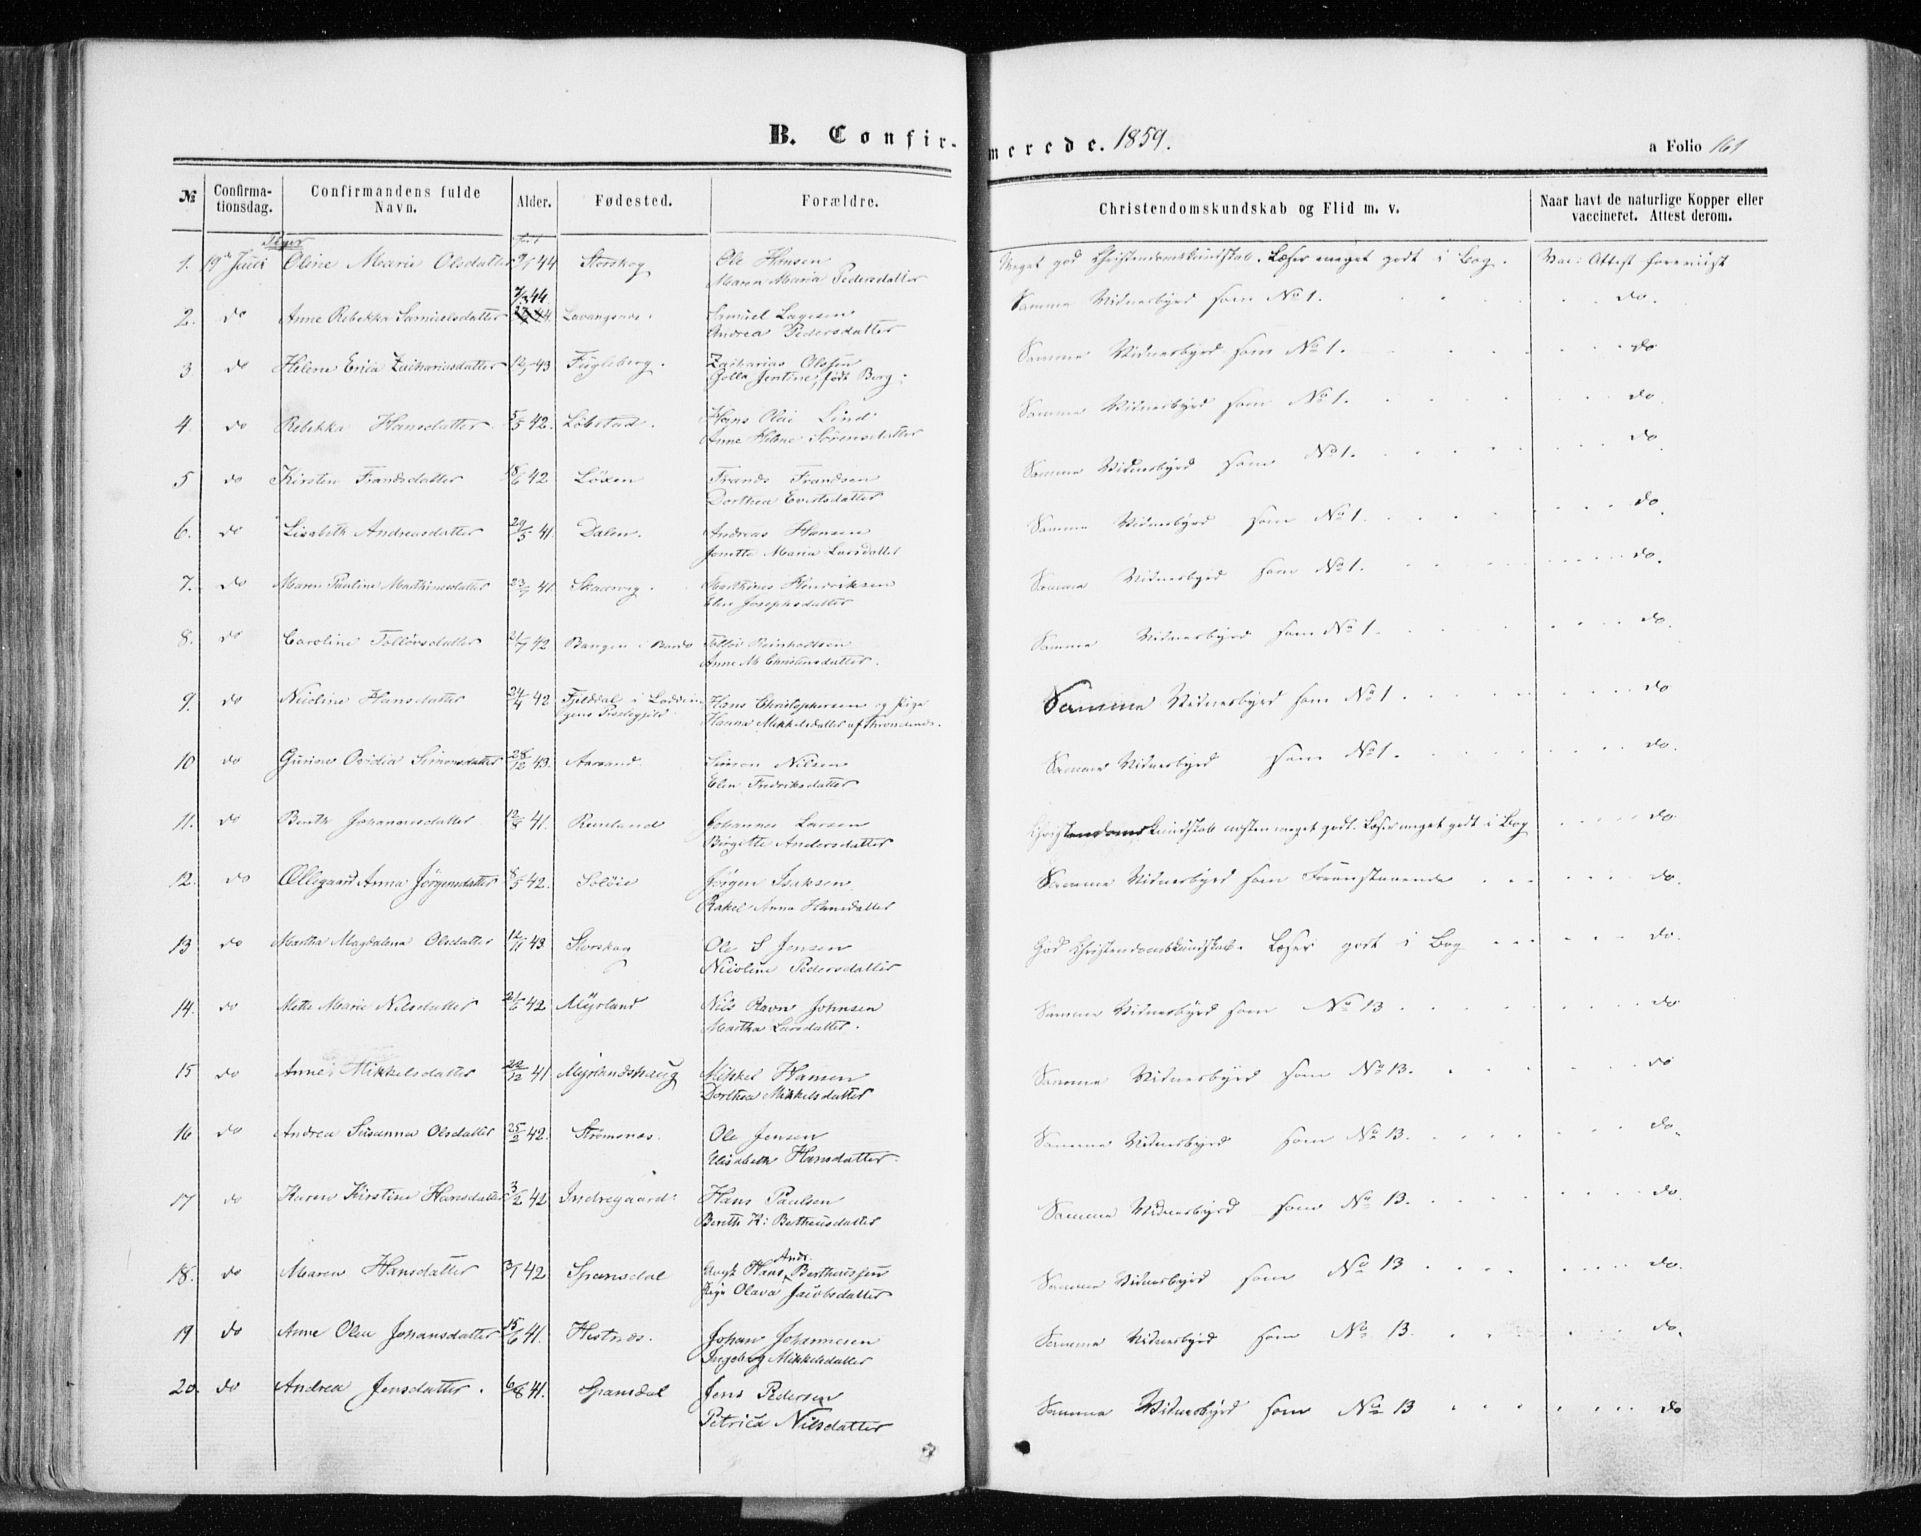 B. Confirmerede. 1859.
a Folio 161
№ Confirmationsdag. Confirmandens fulde Navn. Alder. Fødested. Forældre. Christendomskundskab og Flid m. v. Naar havt de naturlige Kopper eller vaccineret. Attest derom.
Piger
1. 19de Juni Oline Marie Olsdatter 44 Storskog Ole Hansen Meget god Christendomskundskab. Læser meget godt i Bog. Vac: Attest foreviist
Maren Maria Pedersdatter
2. do Anne Rebekka Samuelsdatter 44 Lavangsnæs. Samuel Lagesen Samme Vidnesbyrd som No 1. do.
Andrea Pedersdatter
3 do Helene Erica Zachariasdatter 43 Fugleberg. Zacharias Olsen Samme Vidnesbyrd som No 1. do
Jentine, født Borg.
4 do Rebekka Hansdatter 5/5 42. Løbstad. Hans Olai Lind Samme Vidnesbyrd som No 1. do.
Anne Helene Sørensdatter
5 do Kirsten Frandsdatter 18/6 42 Löxen Frands Frandsen Samme Vidnesbyrd som No 1. do
Dorthea Evertsdatter
6. do Lisabeth Andreasdatter 29/5 41. Dalen. Andreas Hansen Samme Vidnesbyrd som No 1. do.
Jonetta Maria Larsdatter
7. do Maren Pauline Marthinusdatter 41. Skaarvig. Marthinus Hendriksen Samme Vidnesbyrd som No 1. do.
Elen Josephsdatter
8. do Caroline Tolløvsdatter 42 Bangen i Bardo Tolløv Reinholdtsen Samme Vidnesbyrd som No 1. do.
Anne M. Christensdatter.
9. do Nicoline Hansdatter 24/4 42 Fjelddal i Lødingens Præstegjeld Hans Christophersen og Pige Samme Vidnesbyrd som No 1. do
Hanna Mikkelsdatter af Trondenæs.
10 do Gurine Ovidia Simonsdatter 28/12 43. Aarsand. Simon Nilsen Samme Vidnesbyrd som No 1. do.
Elen Fredriksdatter
11. do Berith Johannesdatter 41. Renland Johannes Larsen Christendomskundskab næsten meget godt. Læser meget godt i Bog do.
Birgitte Andersdatter
12. do Ollegaard Anna Jørgensdatter 8/5 42. Soløie Jørgen Isaksen Samme Vidnesbyrd som Foranstaaende do.
Rakel Anna Hansdatter
13 do Martha Magdalena Olsdatter 12/11 43. Storskog Ole S Jensen God Christendomskundskab. Læser godt i Bog do.
Nicoline Pedersdatter
14. do Mette Marie Nilsdatter 21/6 42 Myrland Nils Ravn Johnsen Samme Vidnesbyrd som No 13 do
Martha Larsdatter.
15 do Anne Mikkelsdatter 22/12 41. Myrlandshaug Mikkel Hansen Samme Vidnesbyrd som No 13. do
Dorthea Mikkelsdatter
16 do Andrea Susanna Olsdatter 25/2 42. Strømsnæs. Ole Jensen Samme Vidnesbyrd som No 13. do.
Elisabeth Hansdatter.
17 do Karen Kirstine Hansdatter 3/2 42 Indregaard. Hans Paulsen Samme Vidnesbyrd som No 13. do.
Bereth K: Bertheusdatter
18. do Maren Hansdatter 3/1 42 Spansdal Ungk: Hans Andr. Bertheussen Samme Vidnesbyrd som No 13 do.
Pige Olava Jacobsdatter
19 do Anne Olea Johansdatter 15/6 41. Hestnæs. Johan Johannesen Samme Vidnesbyrd som No 13. do.
Ingeborg Mikkelsdatter
20. do Andrea Jensdatter. 6/8 41. Spansdal Jens Pedersen Samme Vidnesbyrd som No 13 do
Petrica Nilsdatter